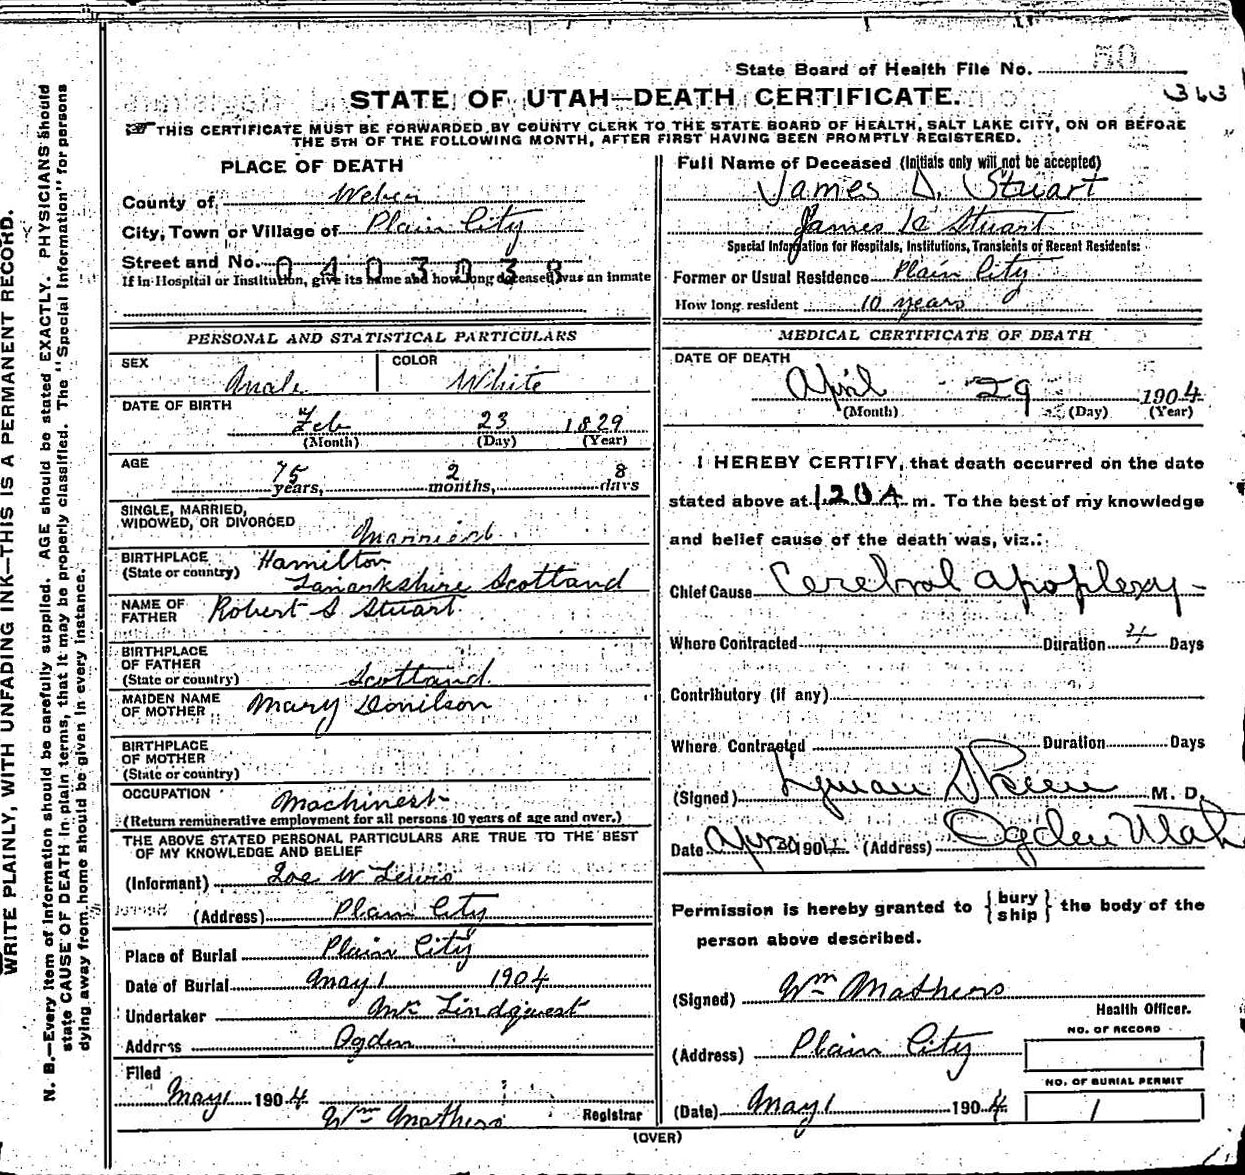 WRITE PLAINLY, WITH UNFADING INK—THIS IS A PERMANENT RECORD.
N. B.—Every item of information should be carefully supplied. AGE should be stated EXACTLY. PHYSICIANS should
state CAUSE OF DEATH in plain terms, that it may be properly classified. The "Special Information" for persons
dying away from home should be given in every instance.
State Board of Health File No. 50
363
STATE OF UTAH—DEATH CERTIFICATE.
THIS CERTIFICATE MUST BE FORWARDED BY COUNTY CLERK TO THE STATE BOARD OF HEALTH, SALT LAKE CITY, ON OR BEFORE
THE 5TH OF THE FOLLOWING MONTH, AFTER FIRST HAVING BEEN PROMPTLY REGISTERED.
PLACE OF DEATH
County of Weber
City, Town or Village of Plain City
Street and No. 0403038
If in Hospital or Institution, give its name and how long deceased was an inmate
Full Name of Deceased (Initials only will not be accepted)
James D. Stuart
James Stuart
Special Information for Hospitals, Institutions, Transients or Recent Residents:
Former or Usual Residence Plain City
How long resident 10 years
PERSONAL AND STATISTICAL PARTICULARS
SEX Male
COLOR White
DATE OF BIRTH
Feb 23 1829
(Month) (Day) (Year)
AGE
75 years, 2 months, 8 days
SINGLE, MARRIED,
WIDOWED, OR DIVORCED Married
BIRTHPLACE Hamilton
(State or country) Lanarkshire Scotland
NAME OF
FATHER Robert S Stuart
BIRTHPLACE
OF FATHER
(State or country) Scotland
MAIDEN NAME
OF MOTHER Mary Donilson
BIRTHPLACE
OF MOTHER
(State or country)
OCCUPATION Machinest
(Return remunerative employment for all persons 10 years of age and over.)
THE ABOVE STATED PERSONAL PARTICULARS ARE TRUE TO THE BEST
OF MY KNOWLEDGE AND BELIEF
(Informant) W Lewis
(Address) Plain City
Place of Burial Plain City
Date of Burial May 1 1904
Undertaker Lindquest
Address Ogden
Filed
May 1 1904
Wm Mathers Registrar
MEDICAL CERTIFICATE OF DEATH
DATE OF DEATH
April 29 1904
(Month) (Day) (Year)
I HEREBY CERTIFY, that death occurred on the date
stated above at 120 A m. To the best of my knowledge
and belief cause of the death was, viz.:
Chief Cause Cerebral apoplexy
Where Contracted Duration Days
Contributory (if any)
Where Contracted Duration Days
(Signed) Lyman Skeen M. D.
Date Apr 30 1904 (Address) Ogden Utah
Permission is hereby granted to {bury
ship} the body of the
person above described.
(Signed) Wm Mathers
Health Officer.
(Address) Plain City
NO. OF RECORD
NO. OF BURIAL PERMIT
1
(Date) May 1 1904
(OVER)